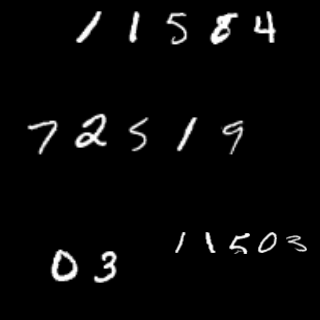 11584
72519
03
11503